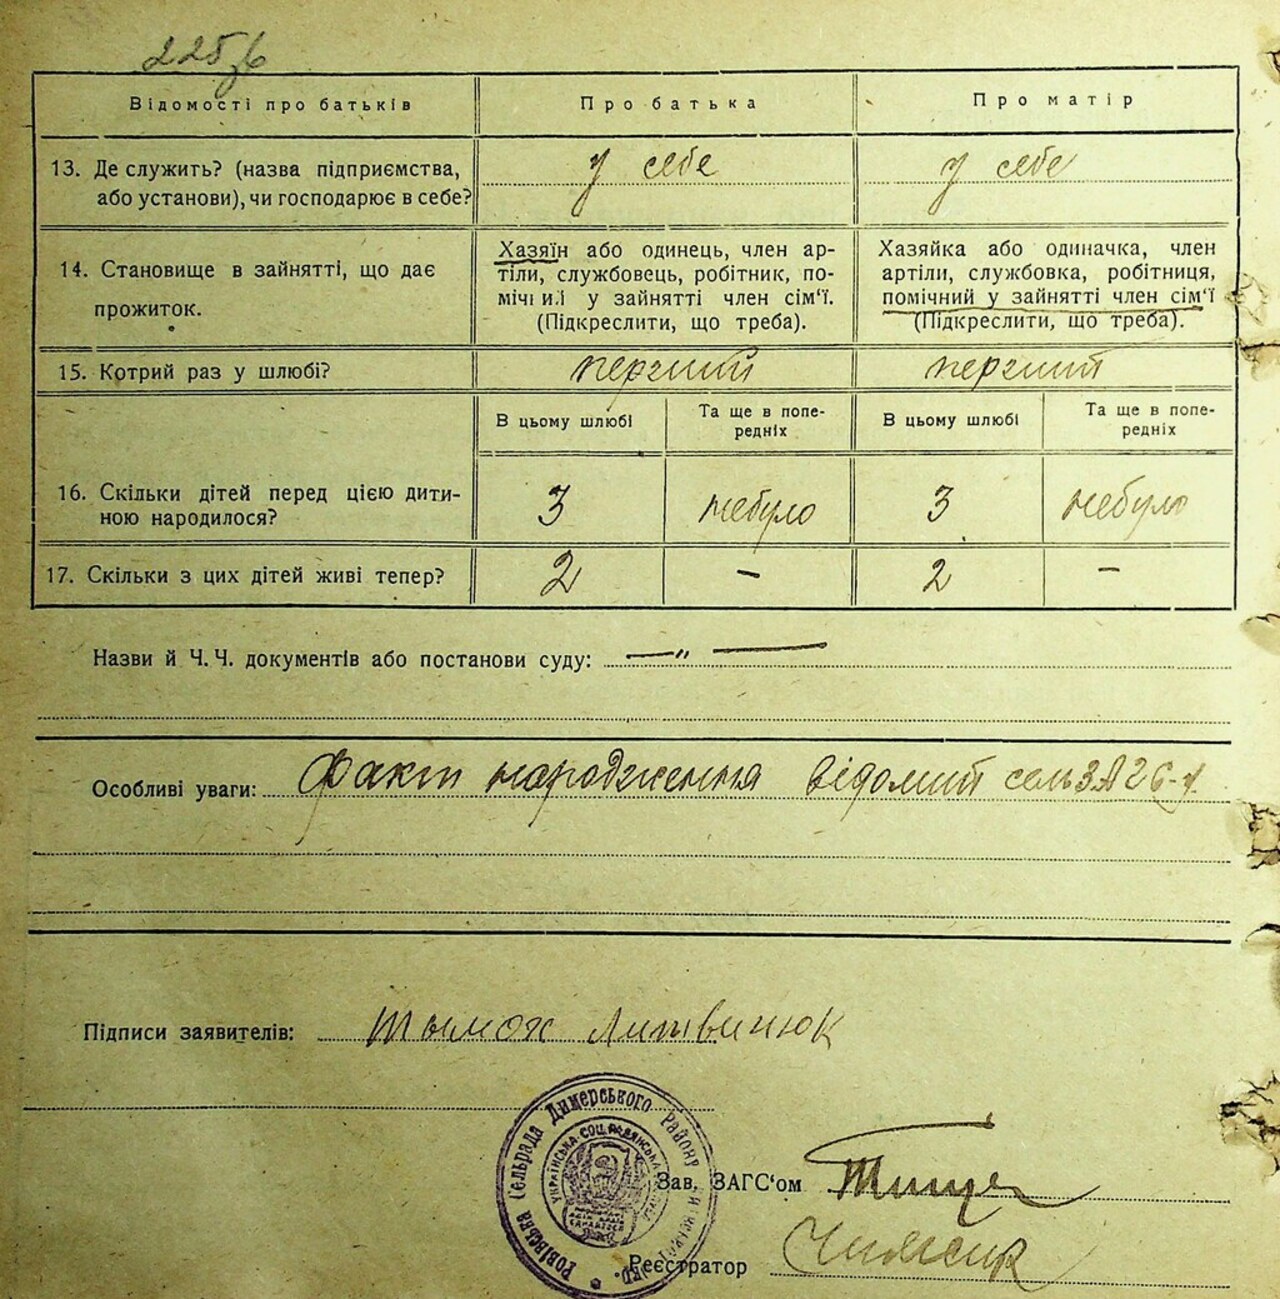 225зв
Відомості про батьків
Про батька
Про матір
13. Де служить? (назва підприємства,
або установи), чи господарює в себе?
у себе
у себе
14. Становище в зайнятті, що дає
прожиток.
Хазяїн або одинець, член ар-
тіли, службовець, робітник, по-
мічний у зайнятті член сім'ї.
(Підкреслити, що треба).
Хазяйка або одиначка, член
артіли, службовка, робітниця,
помічний у зайнятті член сім'ї
(Підкреслити, що треба).
15. Котрий раз у шлюбі?
перший
перший
В цьому шлюбі
Та ще в попе-
редніх
В цьому шлюбі
Та ще в попе-
редніх
16. Скільки дітей перед цією дити-
ною народилося?
3
небуло
3
небуло
17. Скільки з цих дітей живі тепер?
2
-
2
-
Назви й Ч. Ч. документів або постанови суду: — „ —
Особливі уваги: Факт народження відомий
Підписи заявителів: Тымох Литвинюк
Ровівська Сельрада Димерського району
Зав. ЗАГС'ом
Реєстратор